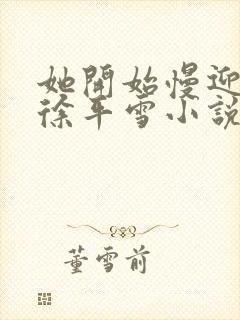 她開始慢迎
徐平雪小説
董雪前